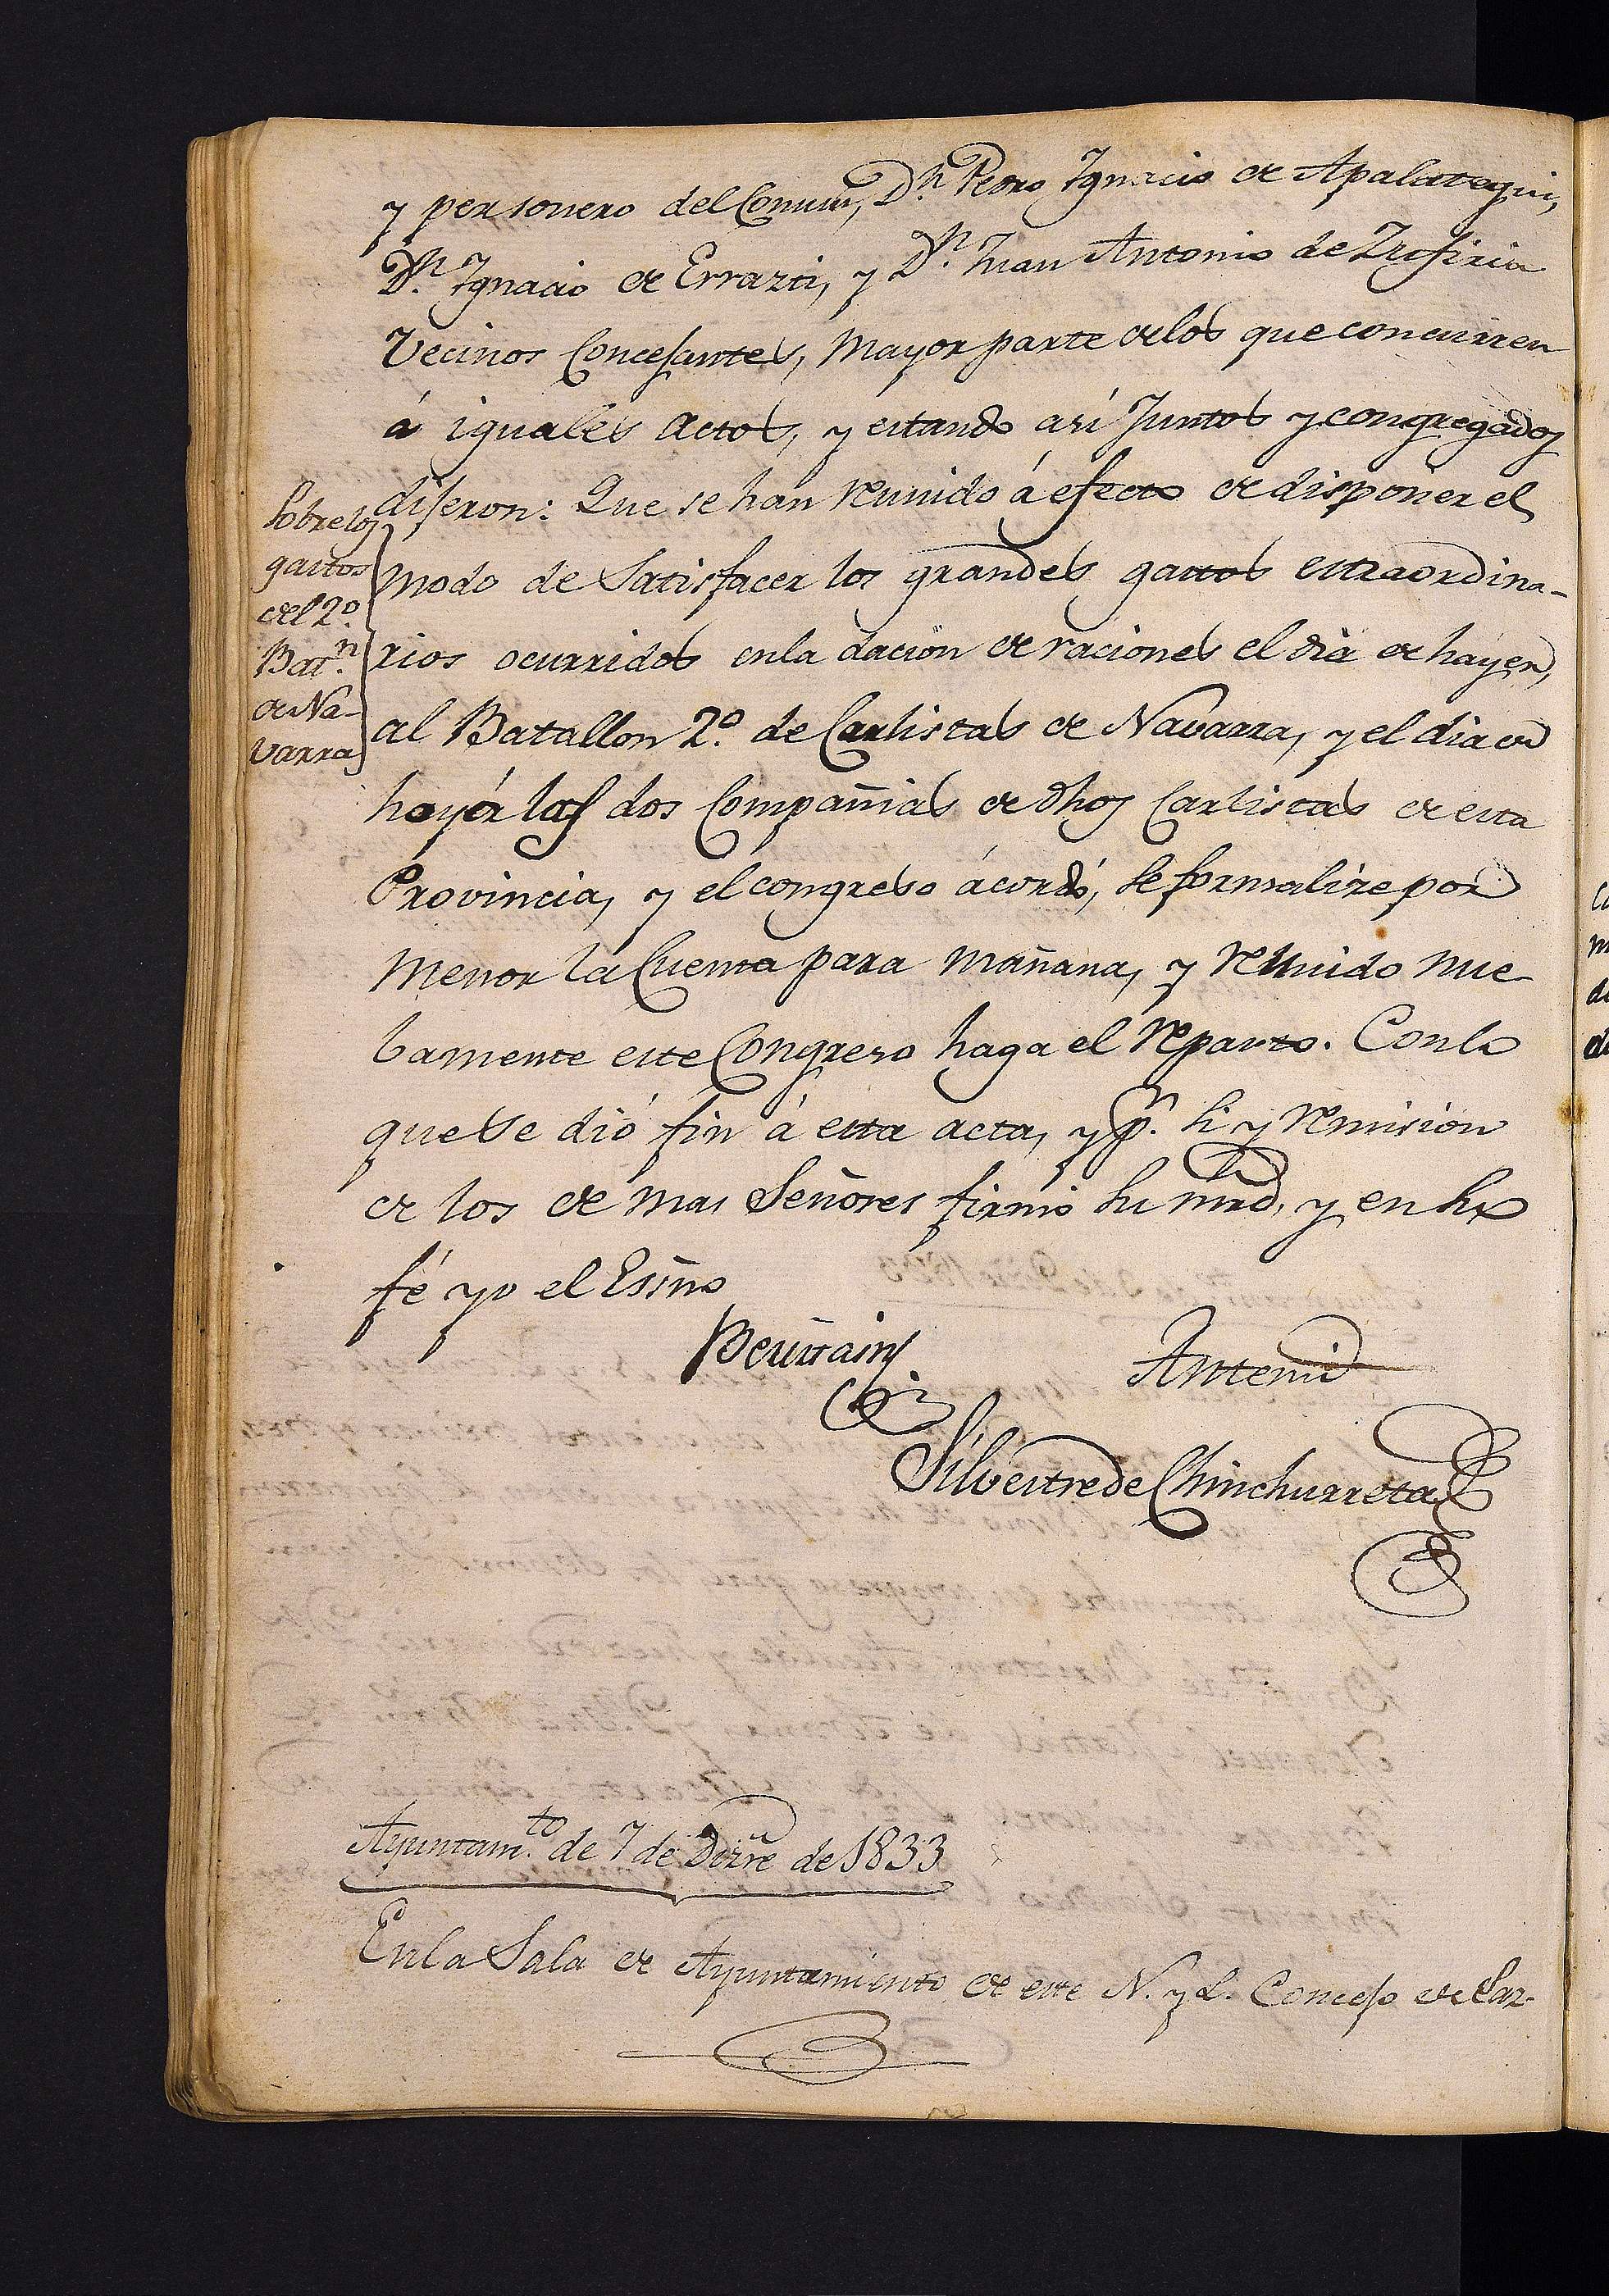 y personero del Comun, Dn. Pedro Ygnacio de Apalategui,
Dn. Ygnacio de Errazti, y Dn. Juan Antonio de Zufiria
Vecinos Concejantes, mayor parte de los que concurren
á iguales actos, y estando asi Juntos y congregados
dijeron: Que se han reunido á efecto de disponer el
Sobre los
gastos
del 2º.
Batn.
de Na-
varra
modo de Satisfacer los grandes gastos estraordina-
rios ocurridos en la dacion de raciones el dia de hayer,
al Batallon 2º. de Carlistas de Navarra, y el dia de
hoy á las dos Compañias de dhos Carlistas de esta
Provincia, y el congreso ácordó, se formalize por
menor la Cuenta para mañana, y reunido nue-
bamente este Congreso haga el reparto. Con lo
que se dió fin á esta acta, y p. si y remision
de los de mas Señores firmó su mrd, y en su
fé yo el Essno
Beristain
Antemi
Silvestre de Chinchurreta
Ayuntamto. de 7 de Dizre de 1833
En la Sala de Ayuntamiento de este N. y L. Concejo de Laz-